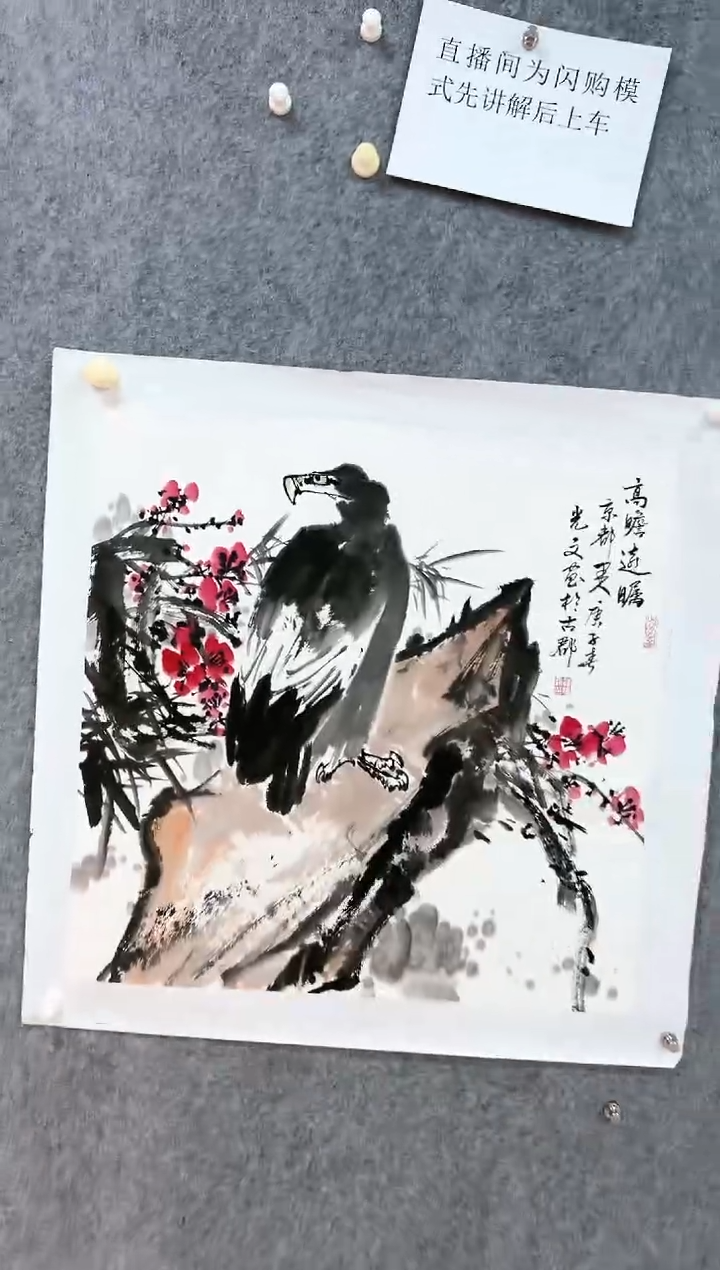 直播间为闪购模
式先讲解后上车
高瞻远瞩
庚子春
京都
光文画於古郡